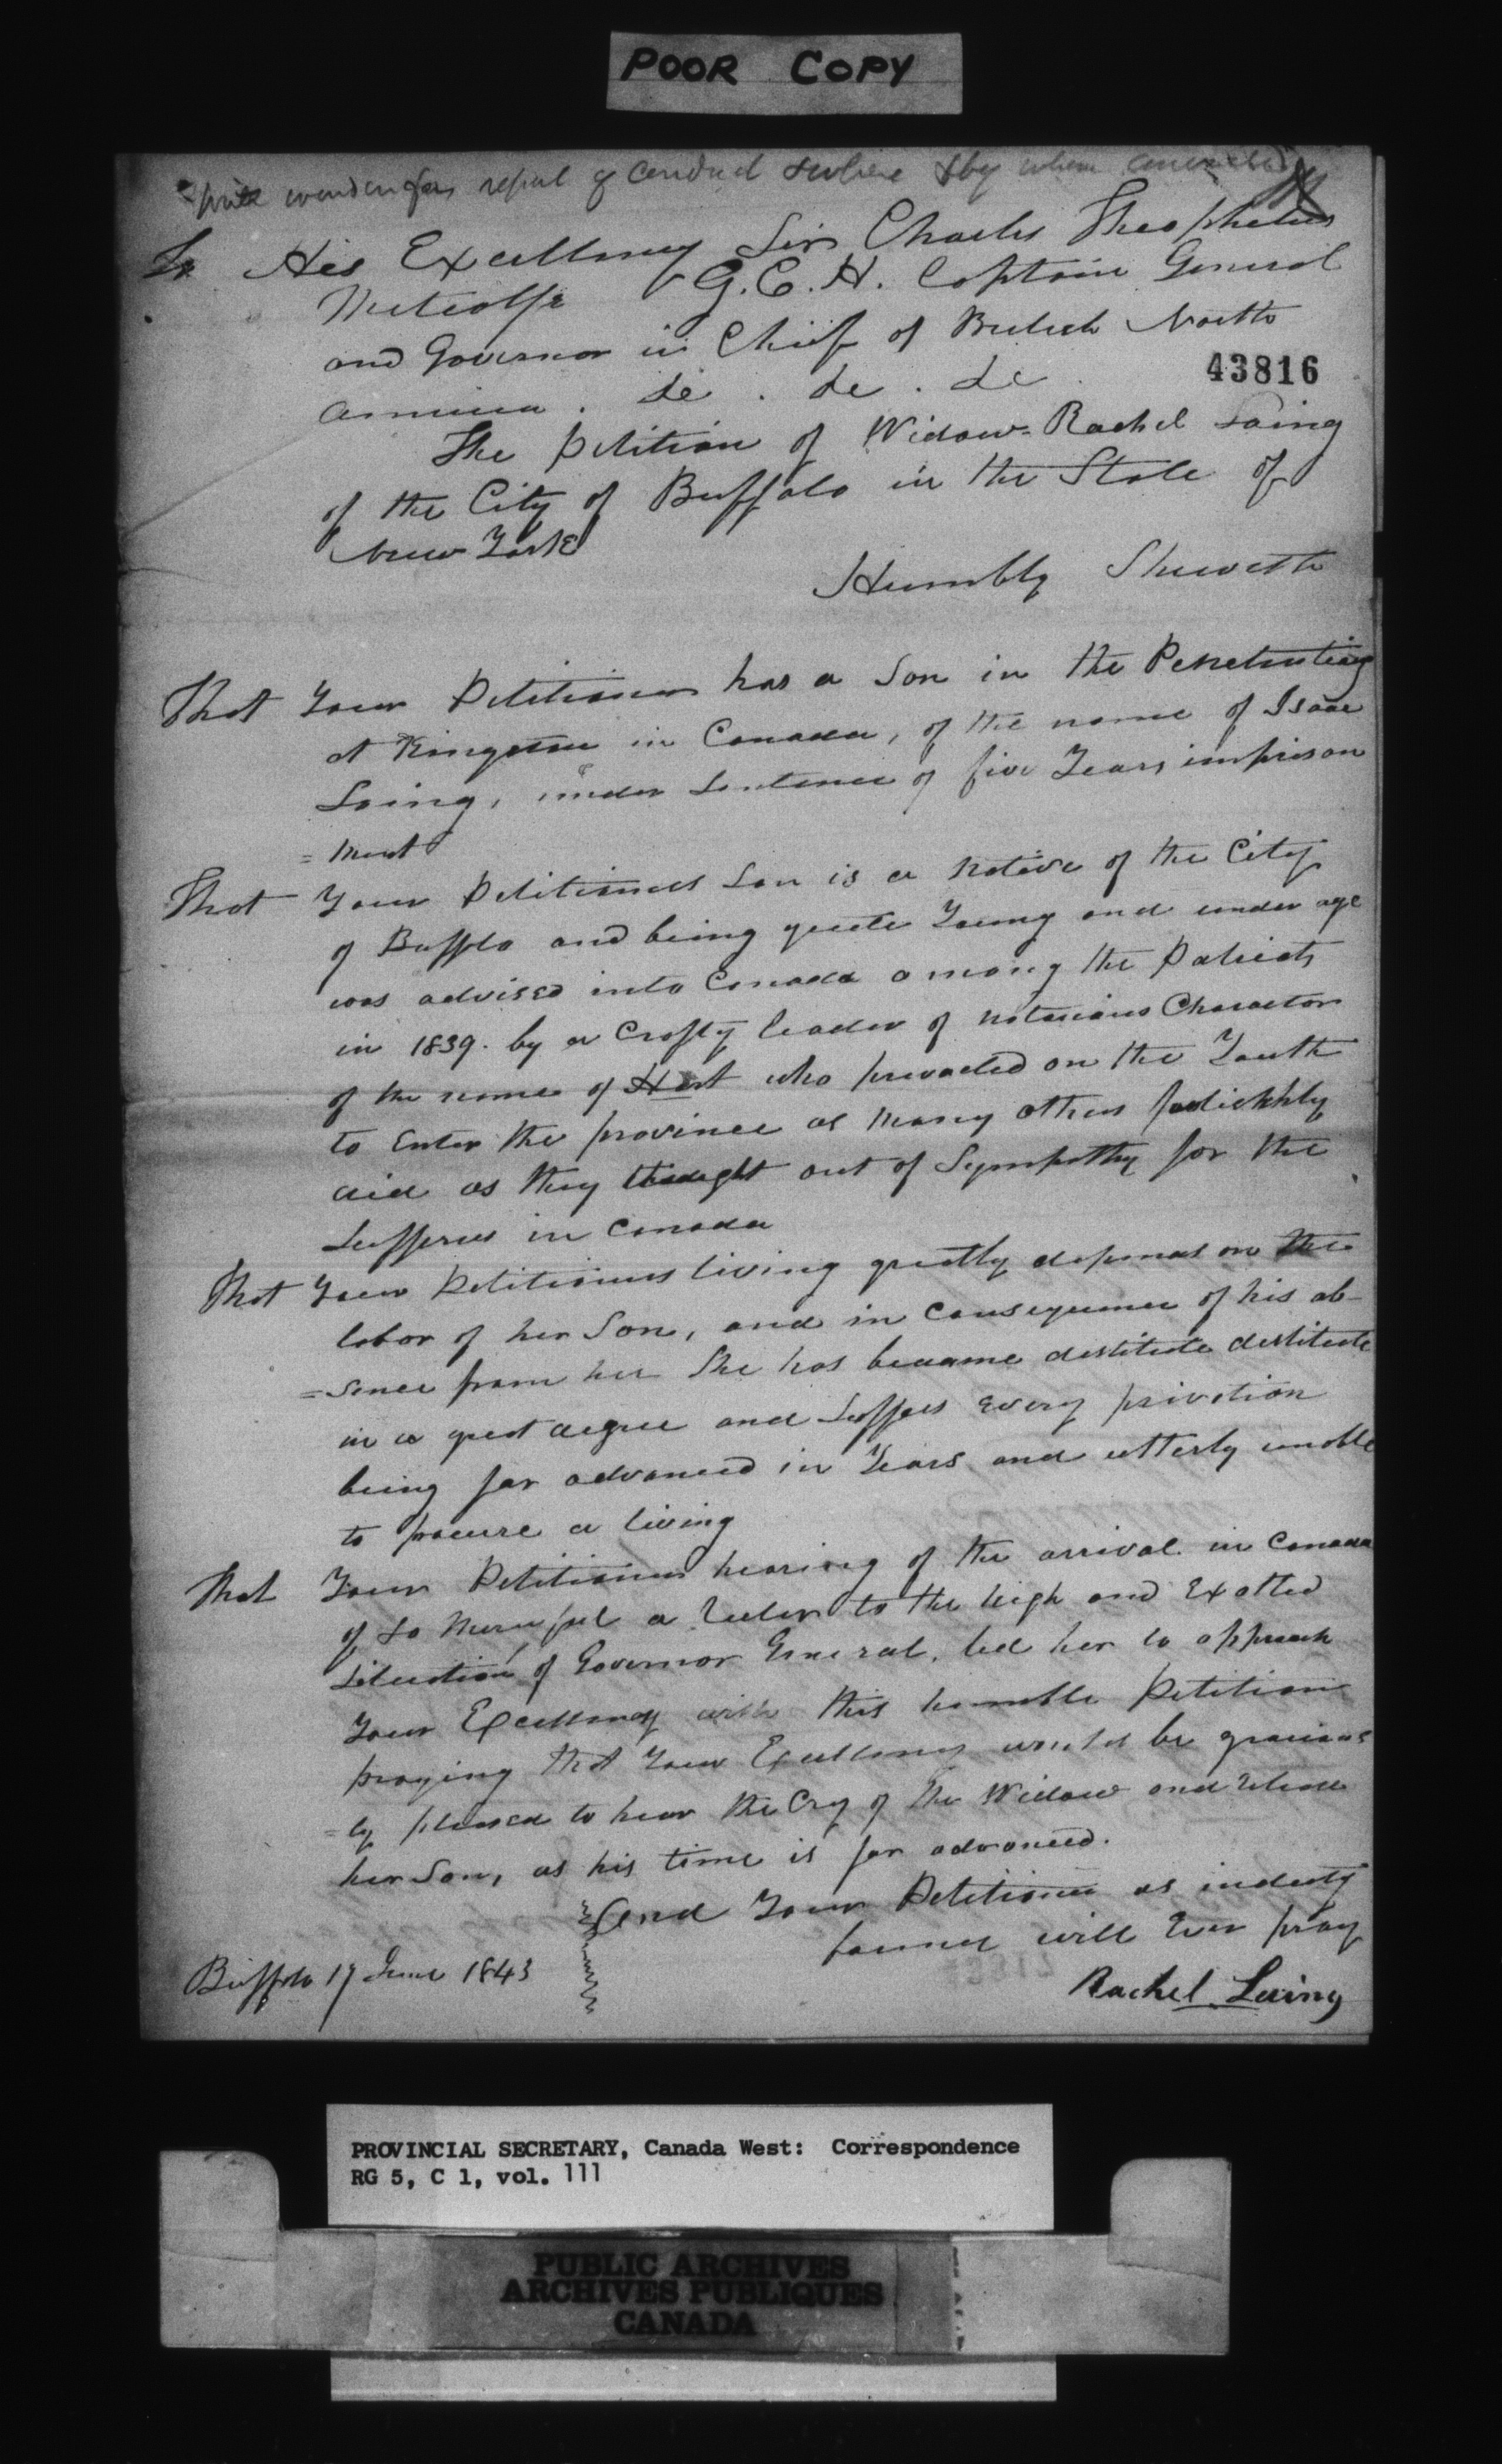 POOR COPY
Write warden for report of conduct & where & by whom convicted
To His Excellency Sir Charles Theophelus
Metcalfe G.C.H. Captain General
and Governor in Chief of British North
43816
America. &c. &c. &c.
The Petition of Widow Rachel Loing
of the City of Buffalo in the State of
New York
Humbly Sheweth
That Your Petitioner has a Son in the Penetentiary
at Kingston in Canada, of the name of Isaac
Loing, under Sentence of five Years imprison
=ment
That Your Petitioners Son is a Native of the City
of Buffalo and being quite Young and under age
was advised into Canada among the Patriots
in 1839. by a Crafty leader of notorious Character
of the name of Hart who prevailed on the Youth
to Enter the province as many others foolishly
did as they thought out of Sympathy for the
Sufferers in Canada
That Your Petitioners living greatly depends on the
labor of her Son, and in Consequence of his ab-
=sence from her She has became destitute destitute
in a great degree and Suffers Every privation
being far advanced in Years and utterly unable
to procure a living
That Your Petitioner hearing of the arrival in Canada
of So Merciful a Ruler to the high and Exalted
Situation of Governor General, led her to approach
Your Excellency with this humble Petition
praying that Your Excellency would be gracious
=ly pleased to hear the Cry of the Widow and release
her Son, as his time is far advanced.
And Your Petitioner as in duty
bound will Ever pray
Buffalo 17 June 1843
Rachel Loing
PROVINCIAL SECRETARY, Canada West: Correspondence
RG 5, C 1, vol. 111
PUBLIC ARCHIVES
ARCHIVES PUBLIQUES
CANADA